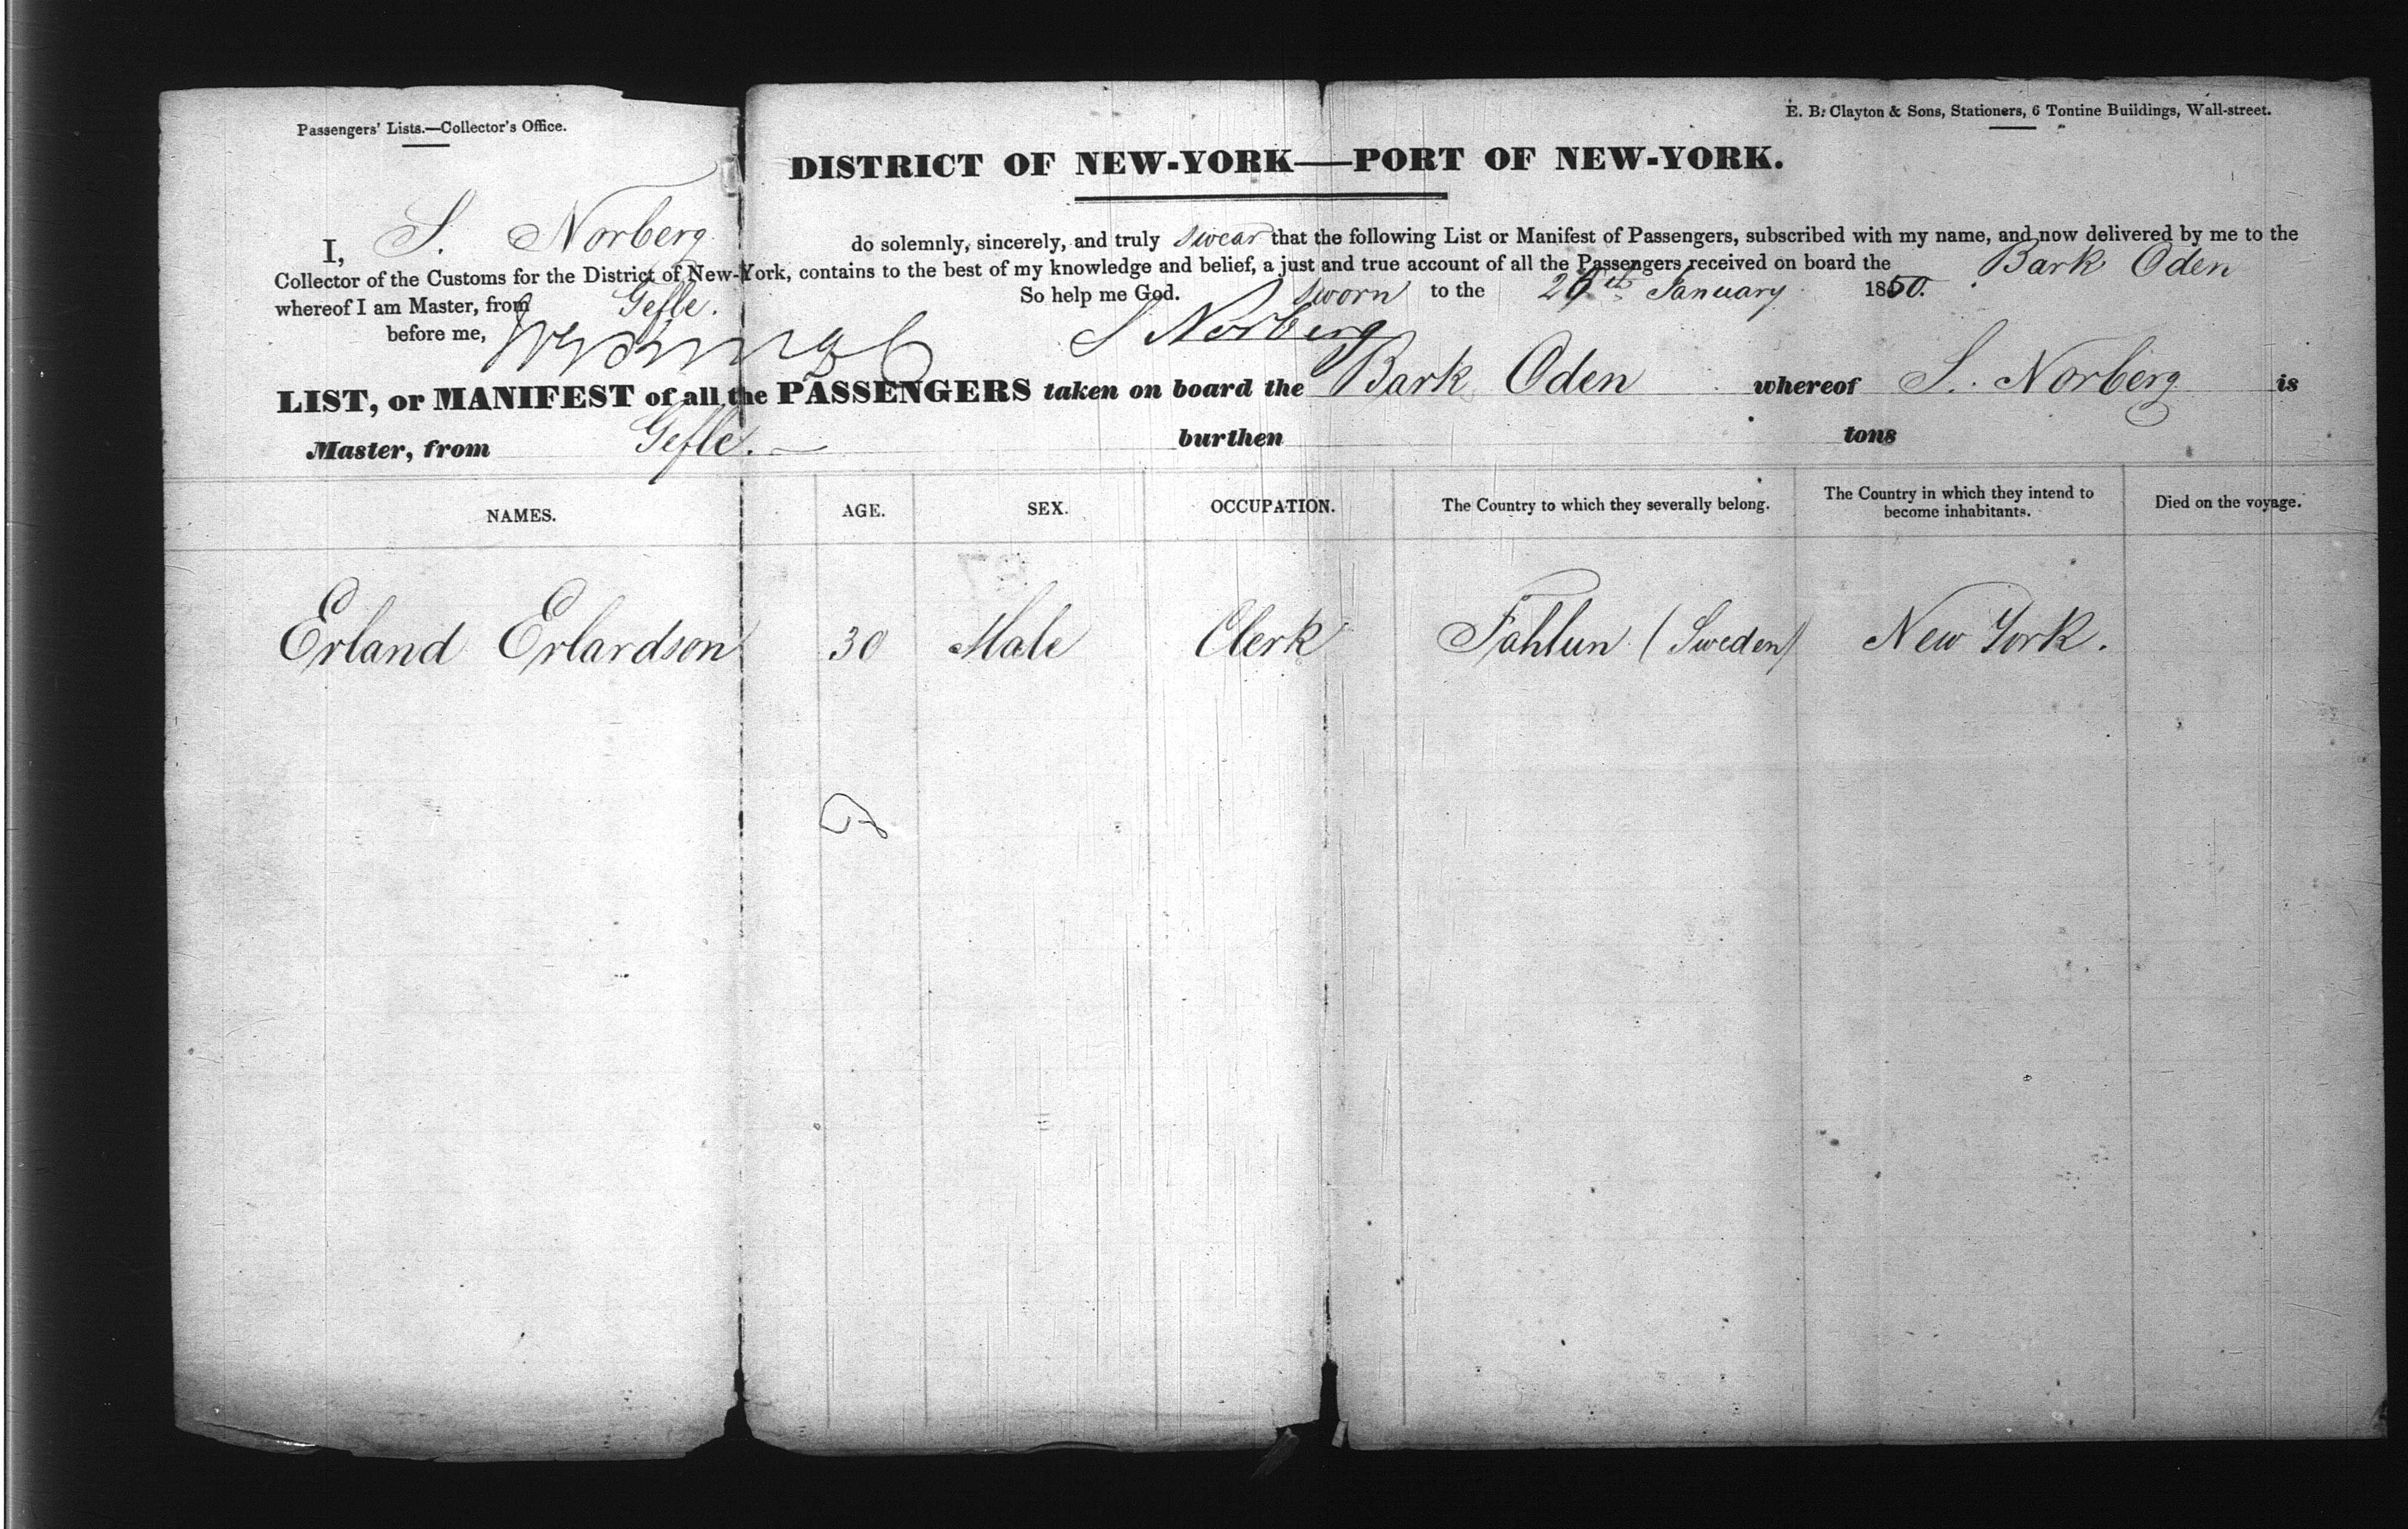 Passengers' Lists.—Collector's Office.
E. B. Clayton & Sons, Stationers, 6 Tontine Buildings, Wall-street.
DISTRICT OF NEW-YORK—PORT OF NEW-YORK.
I, S. Norberg do solemnly, sincerely, and truly swear that the following List or Manifest of Passengers, subscribed with my name, and now delivered by me to the
Collector of the Customs for the District of New-York, contains to the best of my knowledge and belief, a just and true account of all the Passengers received on board the Bark Oden
whereof I am Master, from Gefle. So help me God. Sworn to the January 1850.
before me, S Norberg
LIST, or MANIFEST of all the PASSENGERS taken on board the Bark Oden whereof S. Norberg is
Master, from Gefle. burthen tons
NAMES. AGE. SEX. OCCUPATION. The Country to which they severally belong. The Country in which they intend to become inhabitants. Died on the voyage.
Erland Erlardson 30 Male Clerk Fahlun (Sweden) New York.